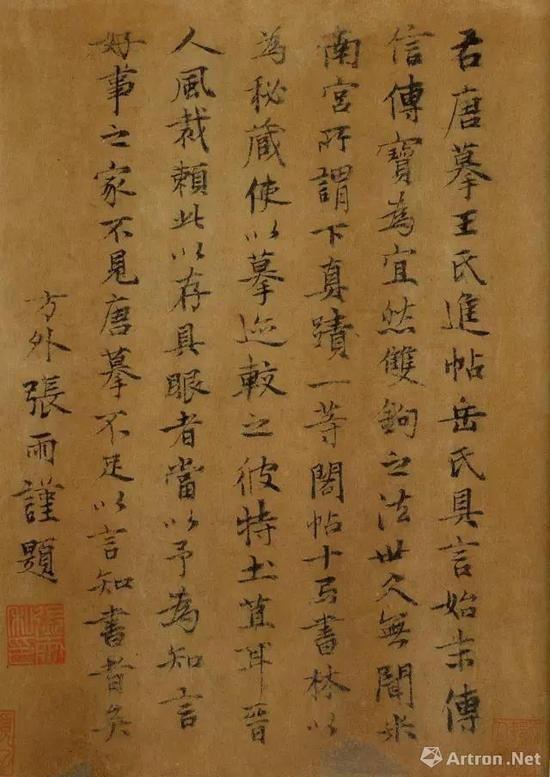 右唐摹王氏進帖岳氏具言始末傳
信傳寶為宜然雙鉤之法世久無聞米
南宮所謂下真蹟一等閣帖十卷書林以
為秘藏使以摹迹較之彼特土苴耳晉
人風裁賴此以存具眼者當以予為知言
好事之家不見唐摹不足以言知書者矣
方外張雨謹題
Artron.Net